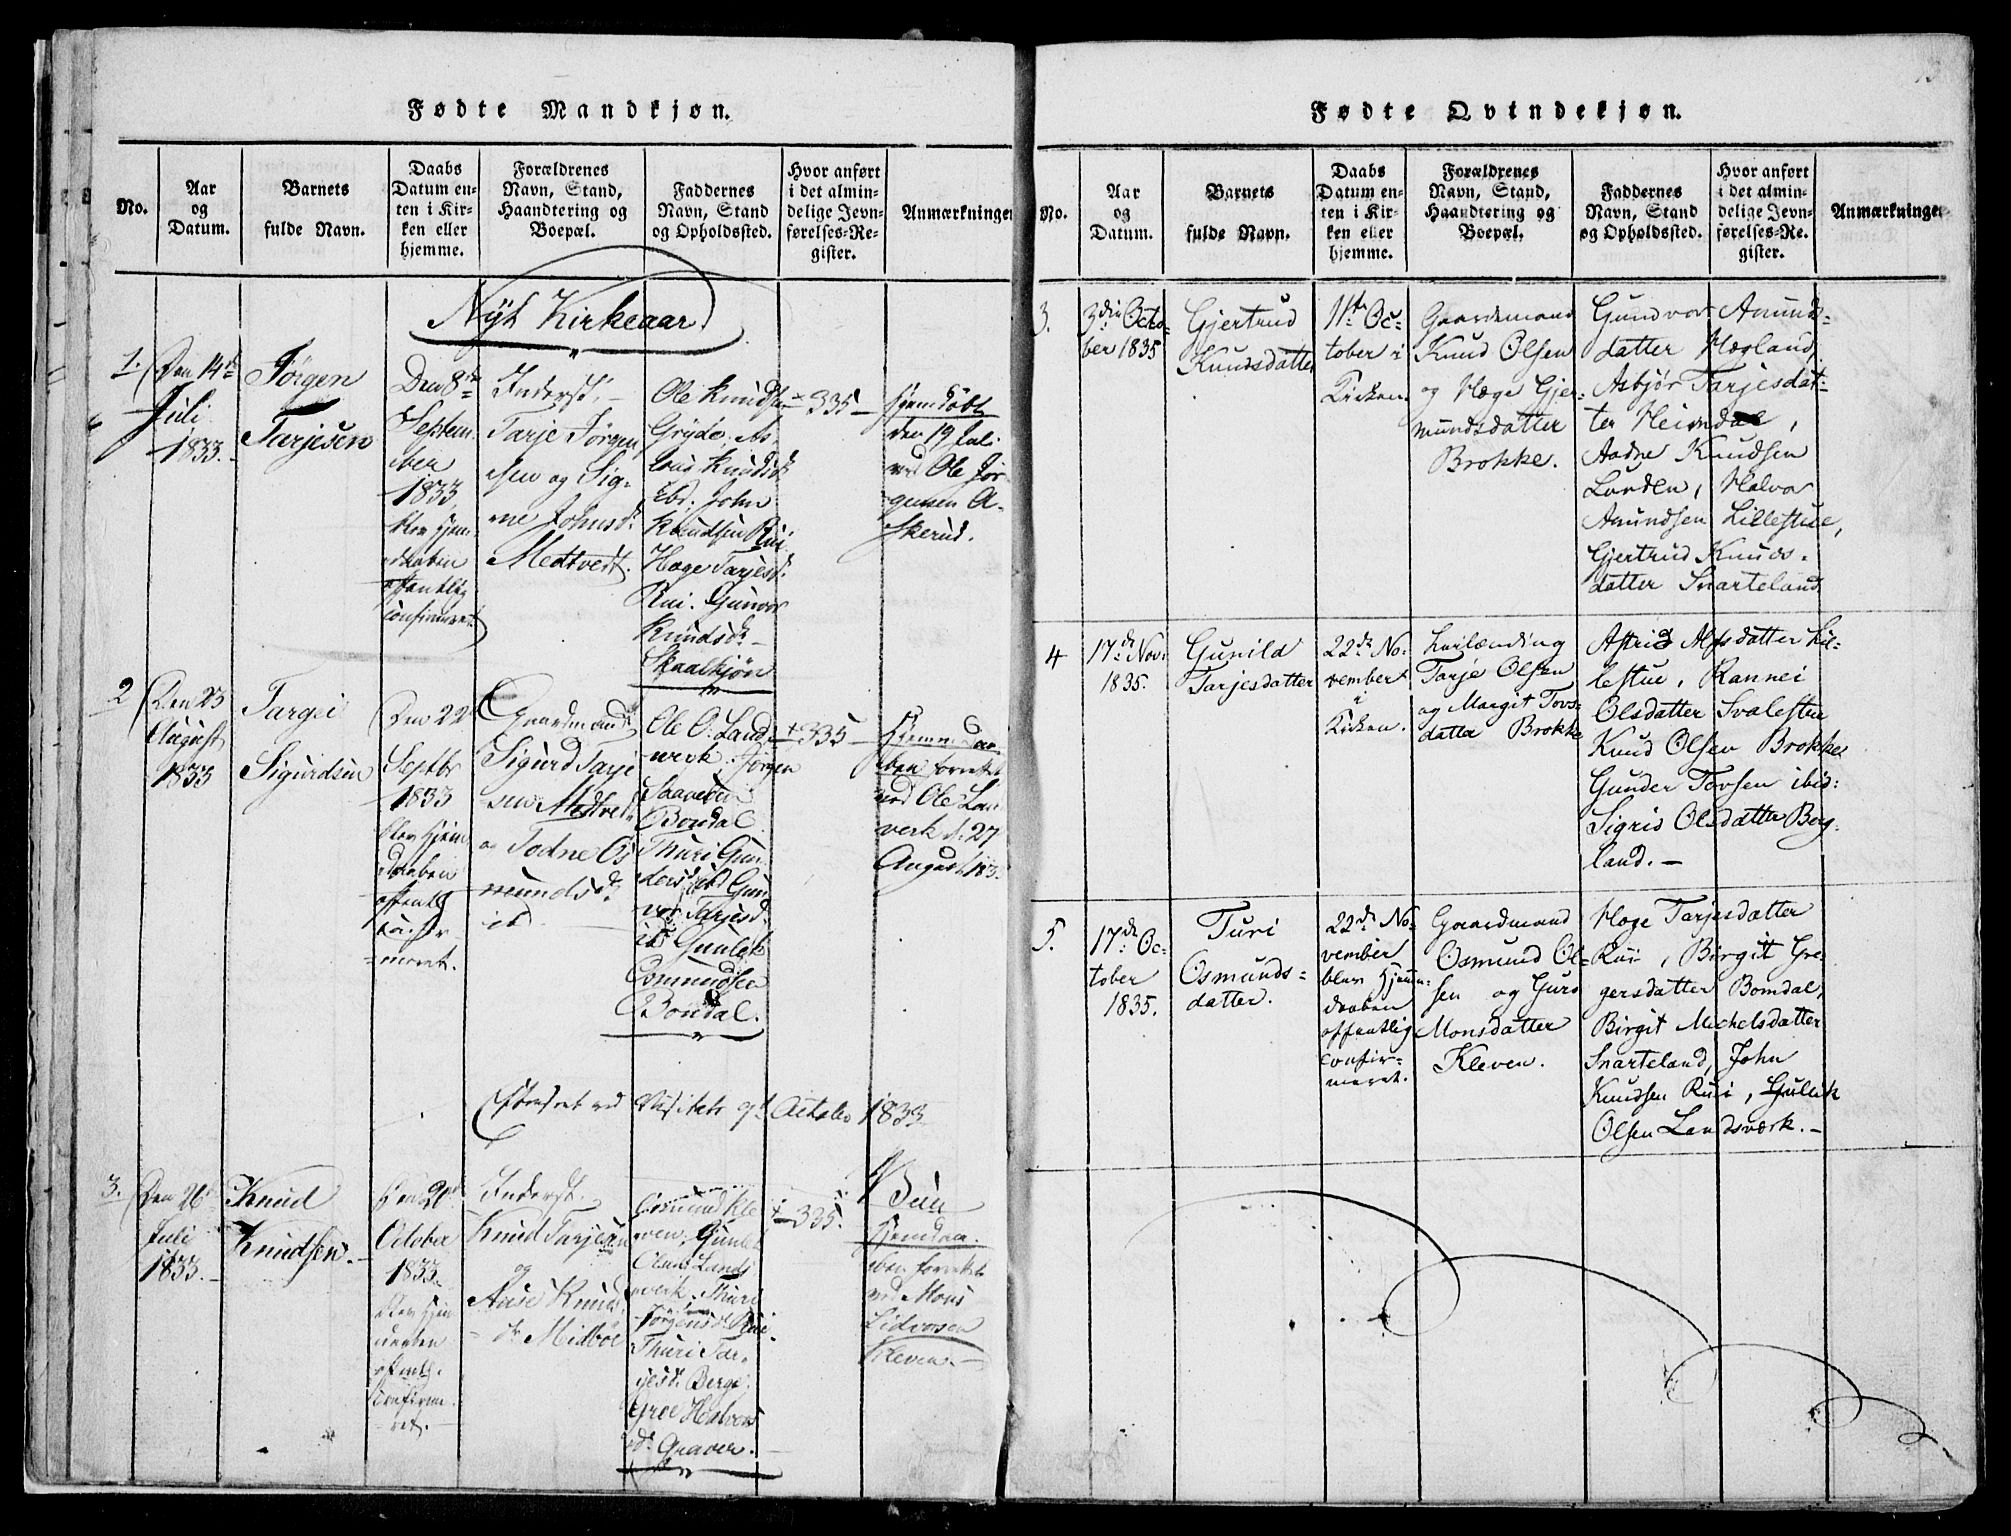 Fødte Mandkjøn.
No.
Aar
og
Datum.
Barnets
fulde Navn.
Daabs
Datum en-
ten i Kir-
ken eller
hjemme.
Forældrenes
Navn, Stand,
Haandtering og
Boepæl.
Faddernes
Navn, Stand
og Opholdssted.
Hvor anført
i det almin-
delige Jevn-
førelses-Re-
gister.
Anmærkninger
Nyt Kirkeaar
1.
Den 14de
Juli
1833.
Jørgen
Tarjesen
Den 8de
Septem-
ber
1833
blev Hjem-
daaben
offentlig
confirmeret
Inderst.
Tarje Jørgen-
sen og Sig-
ne Johnsd.
Medtvedt.
Ole Knudsen
Gryde, As-
laug Knudsd.
Ebd. John
Knudsen Rui,
Hæge Tarjesd.
Rui. Gunvor
Knudsd.
Skaalkjøn
335
hjemdøbt
den 19 Juli
ved Ole Jør-
gensen A-
skerud.
2
Den 23
August
1833
Targei
Sigurdsen
Den 22
Septbr
1833
blev Hjem
daaben
offentl
confir
meret.
Gaardmand
Sigurd Tarje
sen Medtved
og Todne Os
mundsd.
ib.
Ole O. Lands-
værk, Jørgen
Saavesen
Bondal
Thuri Gun
dersd. ibd Gun
vor Tarjesd.
ib Gunlek
Osmundsen
Bondal.
335
Hjemmedaa
ben forrettet
ved Ole Lan
verk d. 27
August 183
Efterseet ved Visitats 9d October 1833
3.
Den 26d
Juli
1833.
Knud
Knudsen.
Den 20d
October
1833.
blev Hjem
daaben
offentl.
Confirme
ret.
Inderst.
Knud Tarjesen
og
Aase Knuds
dr Midbøe
Osmund Kle
ven, Gunlek
Olsen Lands
værk. Thuri
Jørgensd. Rui.
Thuri Tar-
jesd. Berge.
Groe Halvors
d. Graver.
335.
Hjemdaa-
ben forrettet
ved Mons
Lidvosen
Kleven.
Fødte Qvindekjøn.
No.
Aar
og
Datum.
Barnets
fulde Navn.
Daabs
Datum en-
ten i Kir-
ken eller
hjemme.
Forældrenes
Navn, Stand,
Haandtering og
Boepæl.
Faddernes
Navn, Stand
og Opholdssted.
Hvor anført
i det almin-
delige Jevn-
førelses-Re-
gister.
Anmærkninger
3.
3die Octo-
ber 1835
Gjertrud
Knudsdatter
11te Oc-
tober i
Kirken.
Gaardmand
Knud Olsen
og Hæge Gjer-
mundsdatter
Brokke.
Gundvor Amunds-
datter Hægland,
Asbjør Tarjesdat-
ter Heimdal,
Aadne Knudsen
Lunden, Halvor
Amundsen Lillestue,
Gjertrud Knuds-
datter Snarteland
4
17de Nov.
1835.
Gunild
Tarjesdatter
22de No-
vember
i
Kirken.
Leilænding
Tarje Olsen
og Margit Tovs-
datter Brokke
Astrid Alfsdatter Lil-
lestue, Rannei
Olsdatter Svalestue
Knud Olsen Brokke
Gunder Tovsen ibid:
Sigrid Olsdatter Berg-
land.
5.
17de Oc-
tober
1835.
Turi
Osmunds-
datter.
22de No-
vember
blev Hjem-
daaben
offentlig
confir-
meret.
Gaardmand
Osmund Ol-
sen og Guro
Monsdatter
Kleven.
Hæge Tarjesdatter
Rui, Birgit Gre-
gersdatter Bomdal,
Birgit Michelsdatter
Snarteland, John
Knudsen Rui, Gullik
Olsen Landsværk.